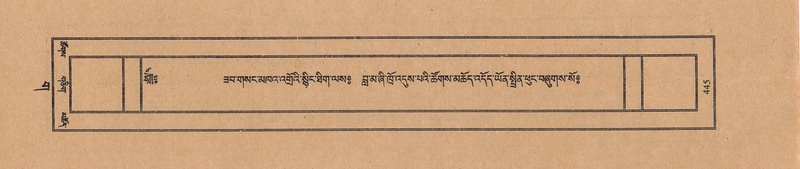 ཟབ་གསང་མཁའ་འགྲོའི་སྙིང་ཐིག་ལས༔ བླ་མ་ཞི་ཁྲོ་འདུས་པའི་ཚོགས་མཆོད་འདོད་ཡོན་སྤྲིན་ཕུང་བཞུགས་སོ༔
445